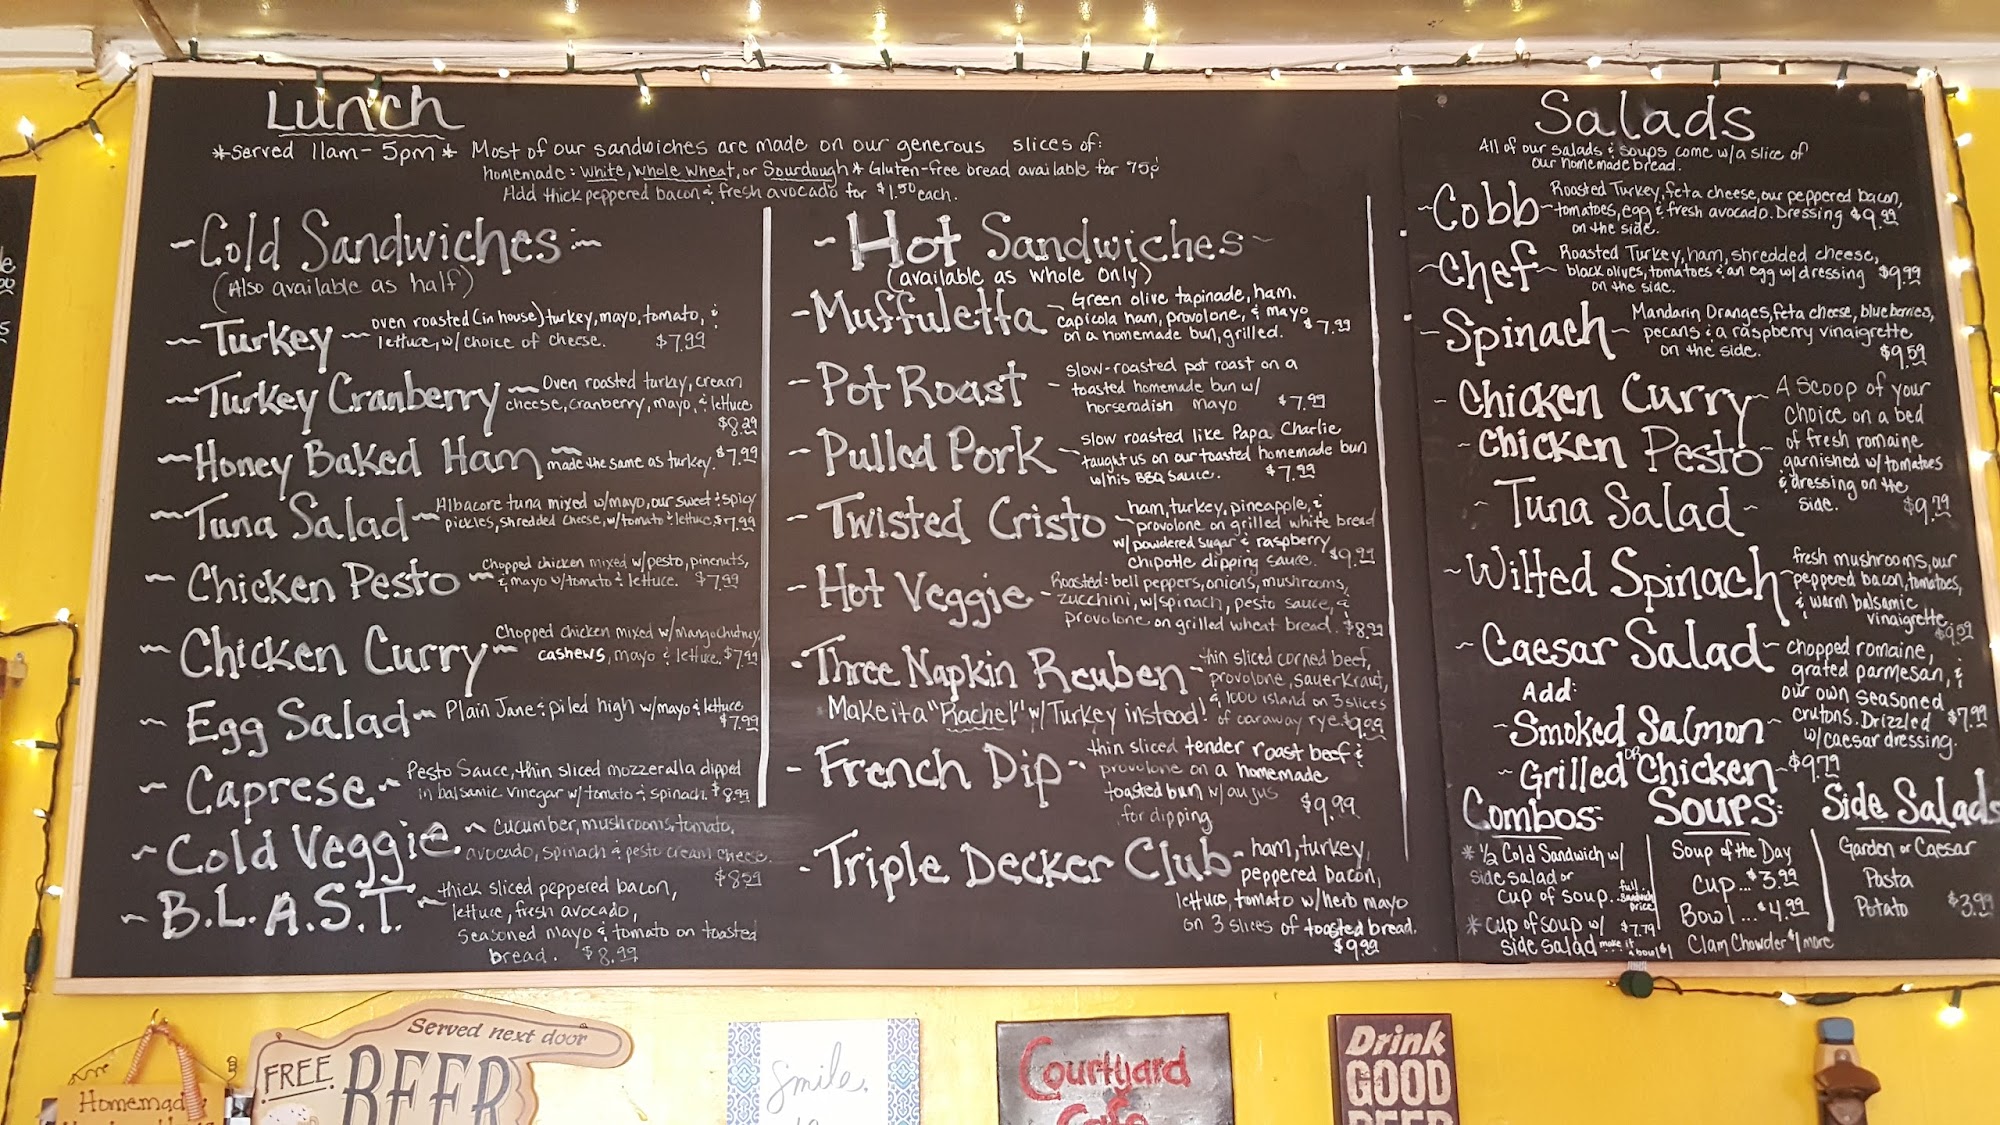 Lunch
*Served 11am-5pm* Most of our sandwiches are made on our generous slices of:
homemade: White, Whole Wheat, or Sourdough * Gluten-free bread available for 75¢
Add thick peppered bacon & fresh avocado for $1.50 each.
~Cold Sandwiches~
(Also available as half)
~Turkey~ oven roasted (in house) turkey, mayo, tomato, &
lettuce, w/ choice of cheese. $7.99
~Turkey Cranberry~ Oven roasted turkey, cream
cheese, cranberry, mayo, & lettuce
$8.29
~Honey Baked Ham~ made the same as turkey. $7.99
~Tuna Salad~ Albacore tuna mixed w/mayo, our sweet & spicy
pickles, shredded cheese, w/tomato & lettuce $7.99
~Chicken Pesto~ chopped chicken mixed w/pesto, pinenuts,
& mayo w/tomato & lettuce. $7.99
~Chicken Curry~ Chopped chicken mixed w/mango chutney,
cashews, mayo & lettuce. $7.99
~Egg Salad~ Plain Jane & piled high w/mayo & lettuce
$7.99
~Caprese~ Pesto Sauce, thin sliced mozzeralla dipped
in balsamic vinegar w/ tomato & spinach. $8.99
~Cold Veggie~ cucumber, mushrooms, tomato,
avocado, spinach & pesto cream cheese.
$8.59
~B.L.A.S.T.~ thick sliced peppered bacon,
lettuce, fresh avocado,
seasoned mayo & tomato on toasted
bread. $8.99
~Hot Sandwiches~
(available as whole only)
-Muffuletta~ Green olive tapinade, ham,
capicola ham, provolone, & mayo
on a homemade bun, grilled. $7.99
-Pot Roast - slow-roasted pot roast on a
toasted homemade bun w/
horseradish mayo $7.99
-Pulled Pork~ slow roasted like Papa Charlie
taught us on our toasted homemade bun
w/his BBQ sauce. $7.99
-Twisted Cristo~ ham, turkey, pineapple, &
provolone on grilled white bread
w/ powdered sugar & raspberry
chipotle dipping sauce. $9.99
-Hot Veggie- Roasted: bell peppers, onions, mushrooms,
zucchini, w/spinach, pesto sauce, &
provolone on grilled wheat bread. $8.99
-Three Napkin Reuben~ thin sliced corned beef,
provolone, sauerkraut,
& 1000 island on 3 slices
Make it a "Rachel" w/ Turkey instead! of caraway rye. $9.99
-French Dip~ thin sliced tender roast beef &
provolone on a homemade
toasted bun w/ aujus
for dipping $9.99
-Triple Decker Club- ham, turkey,
peppered bacon,
lettuce, tomato w/herb mayo
on 3 slices of toasted bread.
$9.99
Salads
All of our salads & soups come w/a slice of
our homemade bread.
~Cobb~ Roasted Turkey, feta cheese, our peppered bacon,
tomatoes, egg & fresh avocado. Dressing $9.99
on the side.
~Chef~ Roasted Turkey, ham, shredded cheese,
black olives, tomatoes & an egg w/ dressing $9.99
on the side.
~Spinach~ Mandarin Oranges, feta cheese, blueberries,
pecans & a raspberry vinaigrette
on the side. $9.59
-Chicken Curry~
~Chicken Pesto~
~Tuna Salad~
A scoop of your
choice on a bed
of fresh romaine
garnished w/ tomatoes
& dressing on the
side. $9.79
~Wilted Spinach~ fresh mushrooms, our
peppered bacon, tomatoes,
& warm balsamic
vinaigrette
$9.59
~Caesar Salad~ chopped romaine,
grated parmesan, &
our own seasoned
crutons. Drizzled $7.99
w/caesar dressing.
Add:
~Smoked Salmon~
or
~Grilled Chicken~ $9.79
Combos:
* 1/2 Cold Sandwich w/
side salad or
cup of soup.. full sandwich price
* cup of soup w/ $7.79
side salad make it a bowl $1
Soups:
Soup of the Day
Cup... $3.99
Bowl... $4.99
Clam Chowder $1 more
Side Salads
Garden or Caesar
Pasta
Potato $3.99
Homemade
FREE BEER
Served next door
Smile
Courtyard
Cafe
Drink
GOOD
BEER